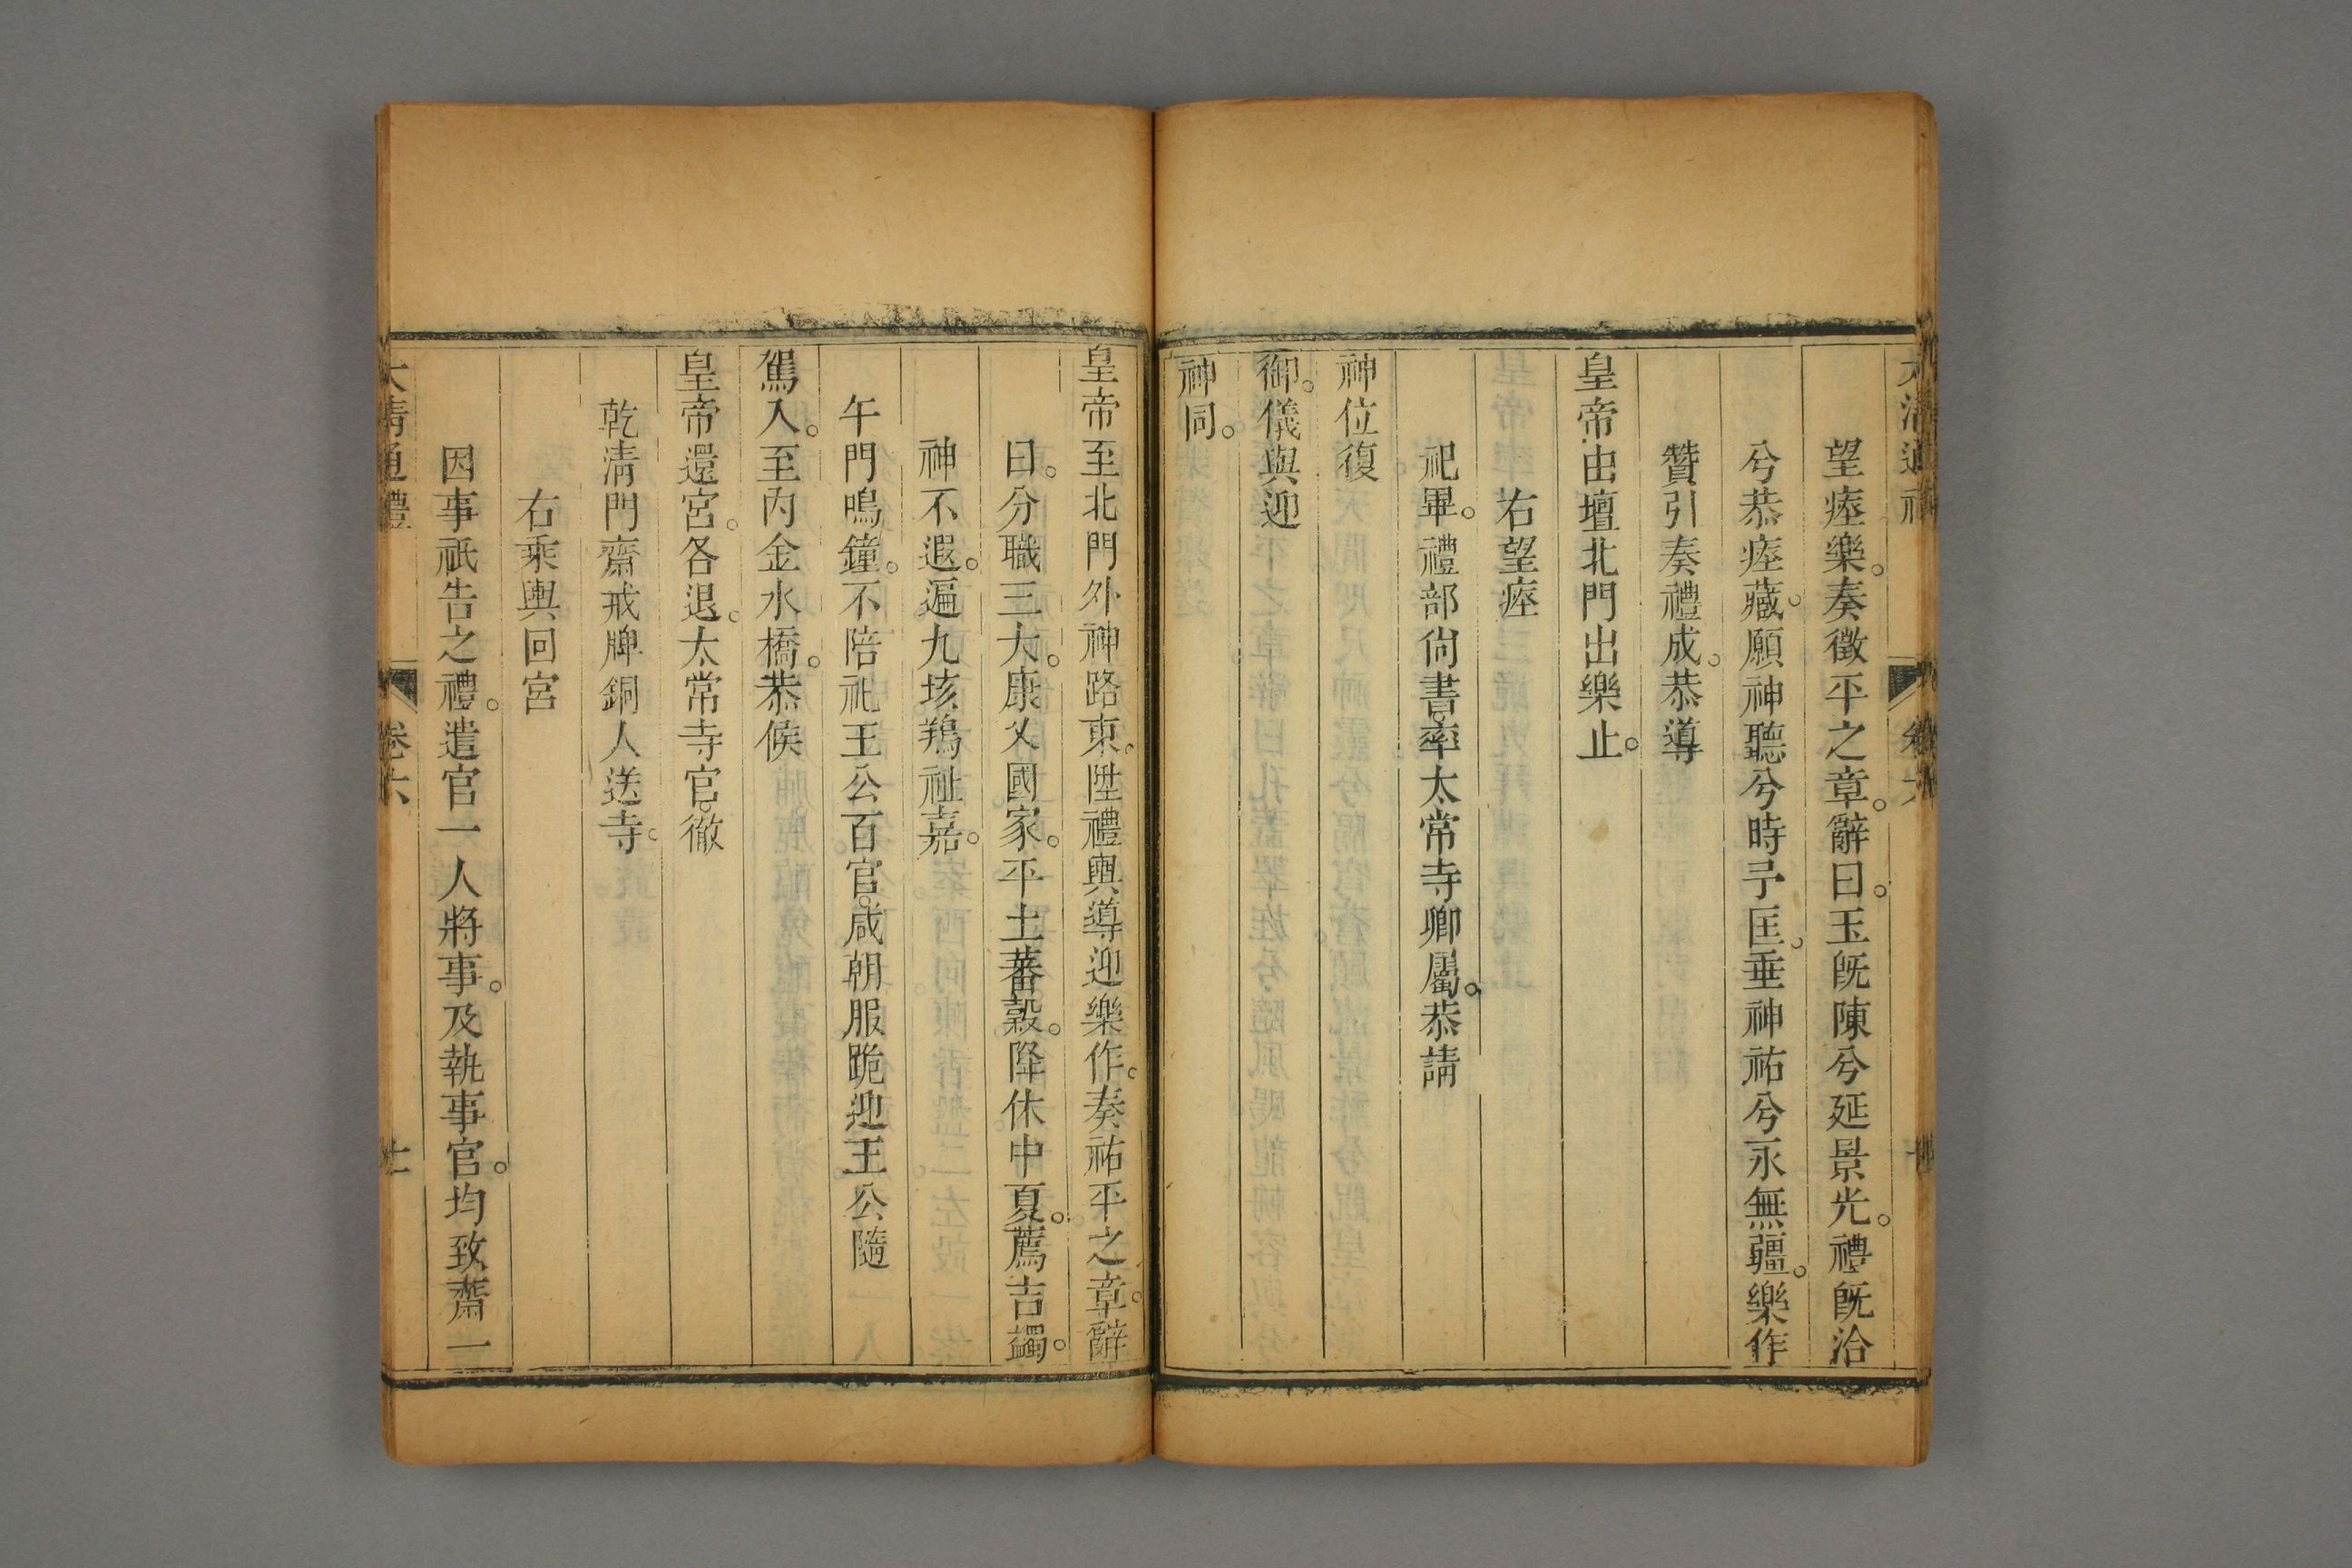 望瘞樂。奏徵平之章。辭曰。玉旣陳兮延景光。禮旣洽
兮恭瘞藏。願神聽兮時予匡。垂神祐兮永無疆。樂作
贊引奏禮成。恭導
皇帝由壇北門出樂止。
右望瘞
祀畢。禮部尙書。率太常寺卿屬。恭請
神位復
御。儀與迎
神同。
皇帝至北門外神路東。陞禮輿導迎樂作。奏祐平之章。辭
曰。分職三大。康乂國家。平土蕃穀。降休中夏。薦吉蠲。
神不遐。遍九垓鴹祉嘉。
午門鳴鐘。不陪祀王公百官。咸朝服跪迎王公隨
駕入。至內金水橋。恭候
皇帝還宮。各退。太常寺官。徹
乾淸門齋戒牌銅人送寺。
右乘輿回宮
因事祇告之禮。遣官一人將事。及執事官。均致齋一
大清通禮 卷六